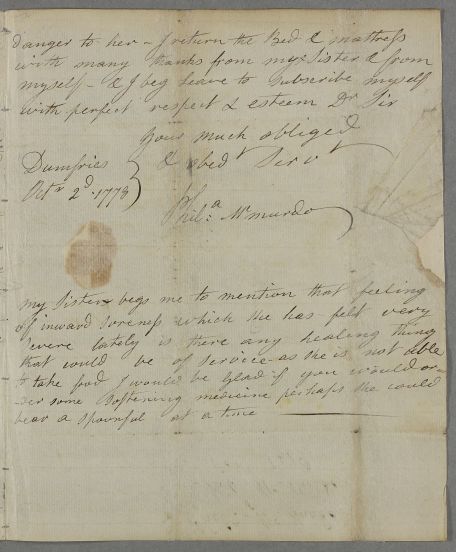 danger to her - I return the Bed & mattress
with many thanks from my Sister & from
myself - & I beg leave to Subscribe myself
with perfect respect & esteem Dr Sir
Your much obliged
& obedt Servt
Dumfries
Octr 2d. 1778
Phila. Mcmurdo
my Sister begs me to mention that feeling
of inward Soreness which she has felt very
severe lately is there any healing thing
that would be of Service as she is not able
to take food I would be glad if you would or
-der some Softening medicine perhaps she could
bear a Spoonful at a time